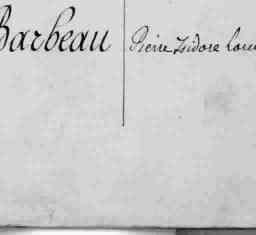 Barbeau Pierre Isidore